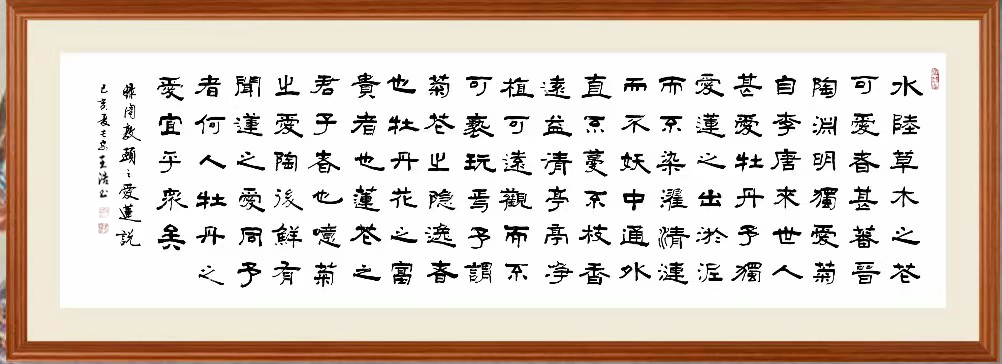 水陸草木之花
可愛者甚蕃晉
陶淵明獨愛菊
自李唐來世人
甚愛牡丹予獨
愛蓮之出淤泥
而不染濯清漣
而不妖中通外
直不蔓不枝香
遠益清亭亭净
植可遠觀而不
可褻玩焉予謂
菊花之隐逸者
也牡丹花之富
貴者也蓮花之
君子者也噫菊
之愛陶後鮮有
聞蓮之愛同予
者何人牡丹之
愛宜乎衆矣
錄周敦頤之愛蓮說
己亥夏王浩书